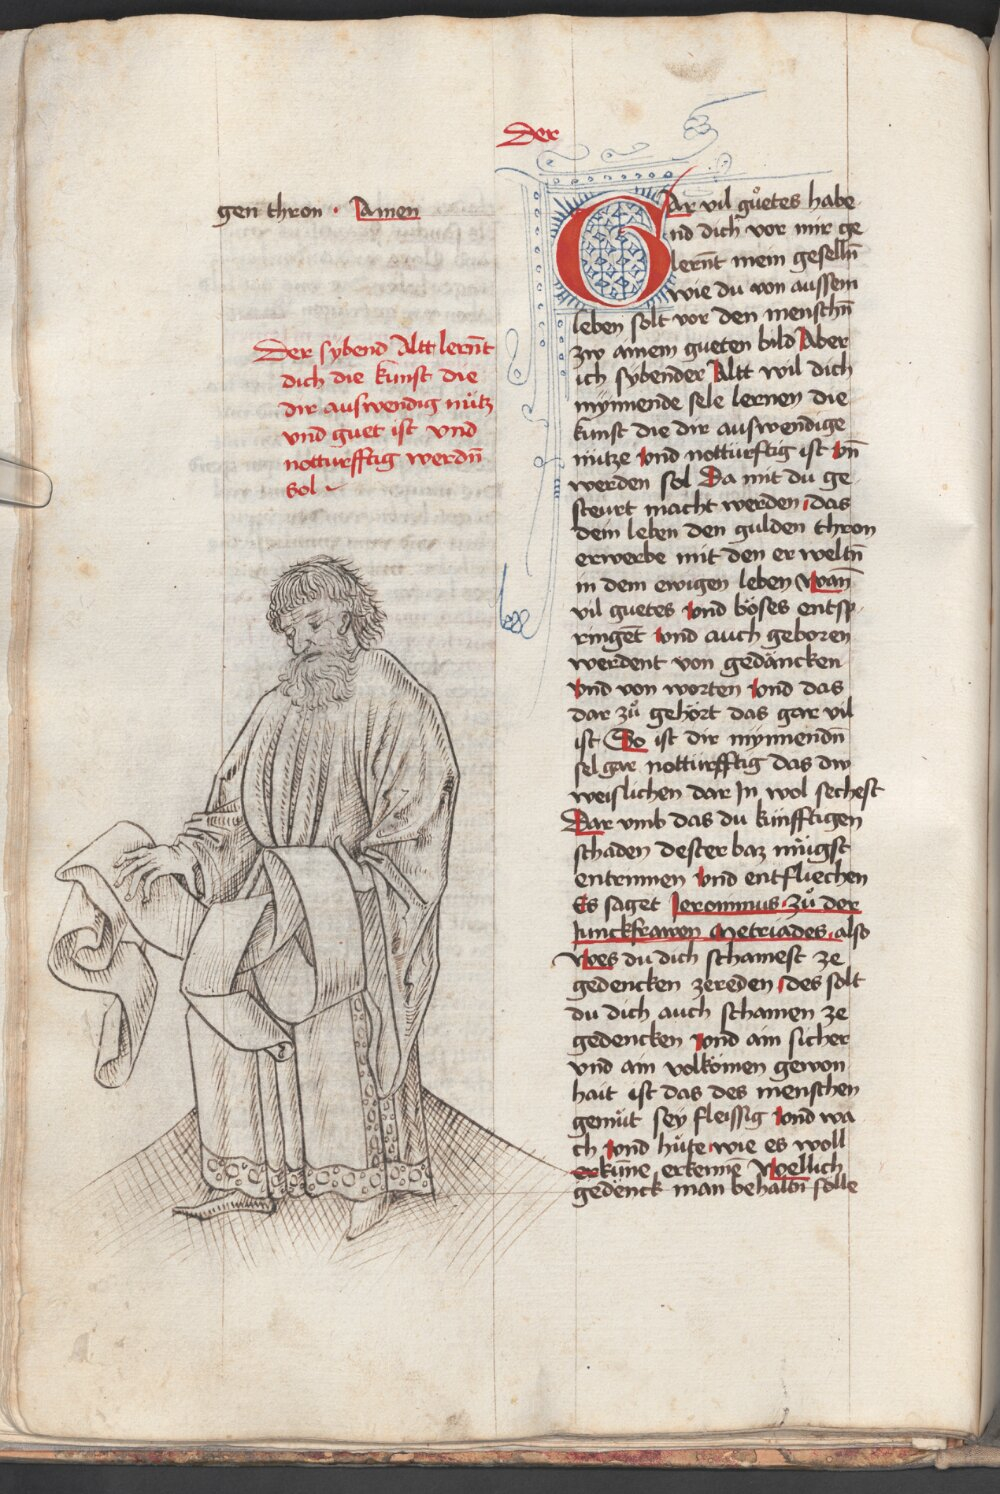 Der
gen thron · Amen
Der sybend Altt lernt̄
dich die kunst die
dir auswendig nütz
vnd guet ist vnd
notturfftig werdn̄
sol
GAr vil gůetes habe
nd dich vor mir ge
lernt̄ mein geselln̄
wie du von aussem
leben solt vor den menschn̄
zw ainem gueten bild Aber
ich sybender Altt wil dich
mynnende sele lernen die
kunst die dir auswendige
nütze vnd notturftig ist vn̄
werden sol Da mit du ge
steurt macht werden das
dein leben den gulden thron
erwerbe mit den er weltn̄
in dem ewigen leben Wan̄
vil guetes vnd böses entsp
ringet̄ vnd auch geboren
werdent von gedäncken
vnd von worten vnd das
dar zů gehört das gar vil
ist So ist dir mynnendn̄
sel gar notturfftig das dw
weislichen dar In wol sechest
Dar vmb das du künfftigen
schaden dester baz mügst
entrinnen vnd entfliechen
Es saget Jeronimus zů der
Junckfrawen Metriades also
Wes du dich schamest ze
gedencken zereden des solt
du dich auch schamen ze
gedencken vnd ain sicher
vnd ain volkömen gewon
hait ist das des menschen
gemüt sey fleissig vnd wa
ch vnd hůte wie es woll
erkūne erkennē Wellich
gedenck man behaltn̄ solle